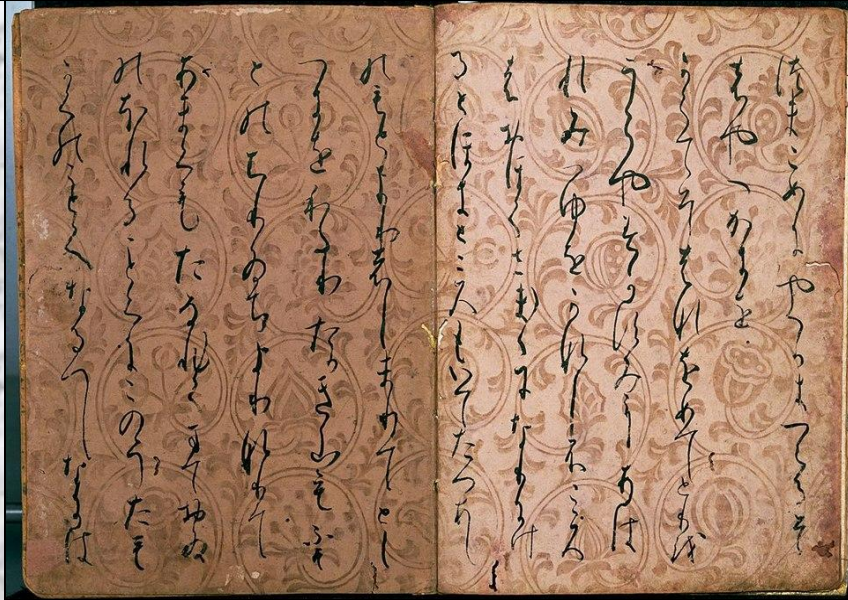 つまこめにやへかきつくるそ
のやへかきを
かくてそはなをめてとりを
うらやみかすみをあは
れみつゆをかなしふこゝろ
ことはおほくさま〱になりにけ
るとほきところもいてたつあし
のもとよりはしまりてとし
つきをわたりたかき山もふも
とのちりひちよりなりて
あまくもたなひくまておひ
のほれることくにこのうたも
かくのことくなるへしなには